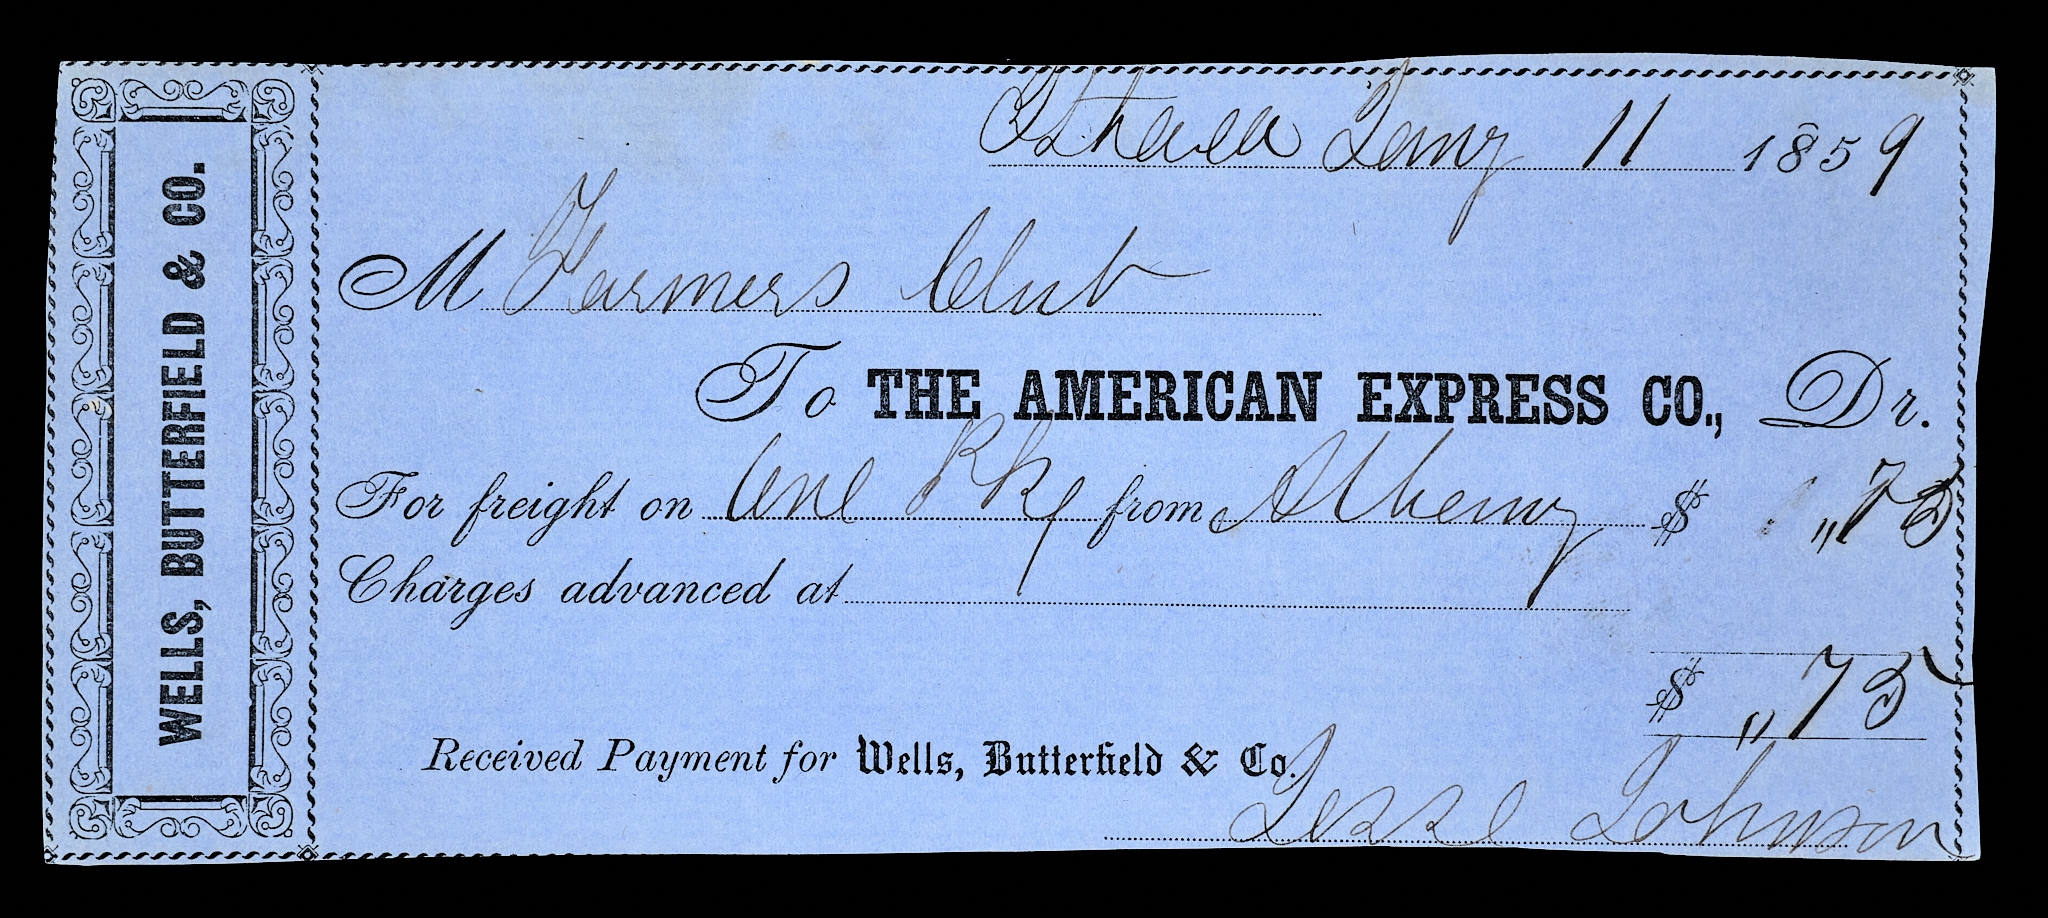 WELLS, BUTTERFIELD & CO.
Ithaca Jany 11 1859
M Farmers Club
To THE AMERICAN EXPRESS CO., Dr.
For freight on One Pkg from Albany $ „75
Charges advanced at
$ „75
Received Payment for Wells, Butterfield & Co.
Jesse Johnson